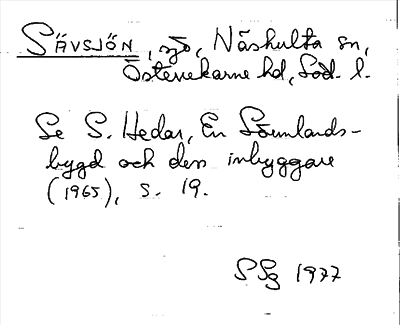 SÄVSJÖN, sjö, Näshulta sn,
Österrekarne hd, Söd. l.
Se S. Hedar, En Sörmlands-
bygd och dess inbyggare
(1965), s. 19.
SSg 1977